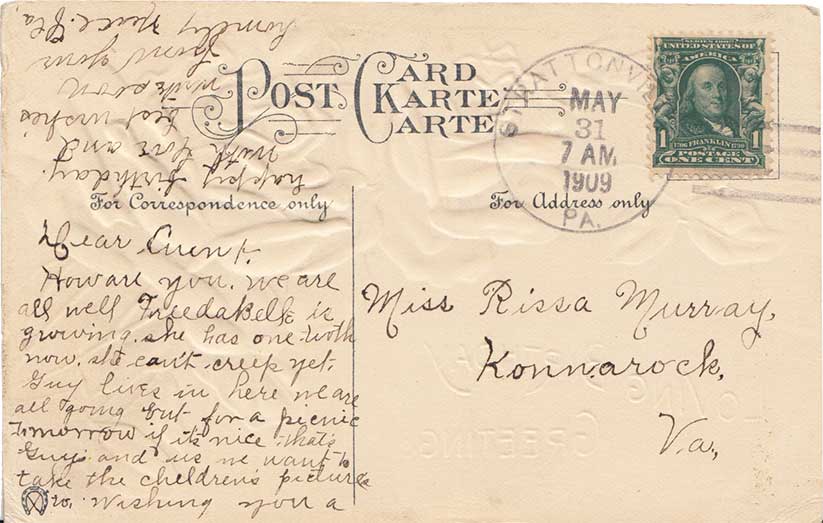 POST CARD
KARTE
CARTE
For Correspondence only
For Address only
STRATTONVI
MAY
31
7 AM
1909
PA.
SERIES 1902
UNITED STATES OF
AMERICA
1 1
1706 FRANKLIN 1790
POSTAGE
ONE CENT
Miss Rissa Murray,
Konnarock,
Va.,
Dear Aunt,
How are you. we are
all well FreedaBelle is
growing. she has one tooth
now. she can't creep yet.
Guy lives in here we are
all going out for a picnic
tomorrow if it's nice that's
Guys and us we want to
take the children's pictures
to. Wishing you a
happy birthday.
with love and
best wishes
write soon
from your
niece
BIRTHDAY
GREETINGS